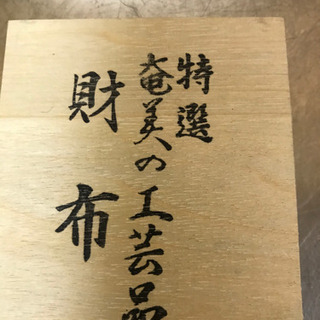 特選
奄美の工芸品
財布